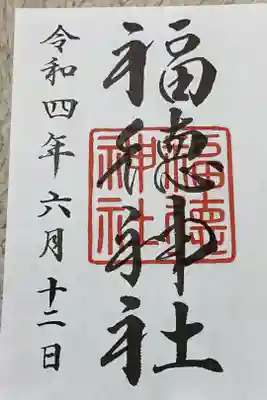 福徳神社
福徳神社
令和四年六月十二日